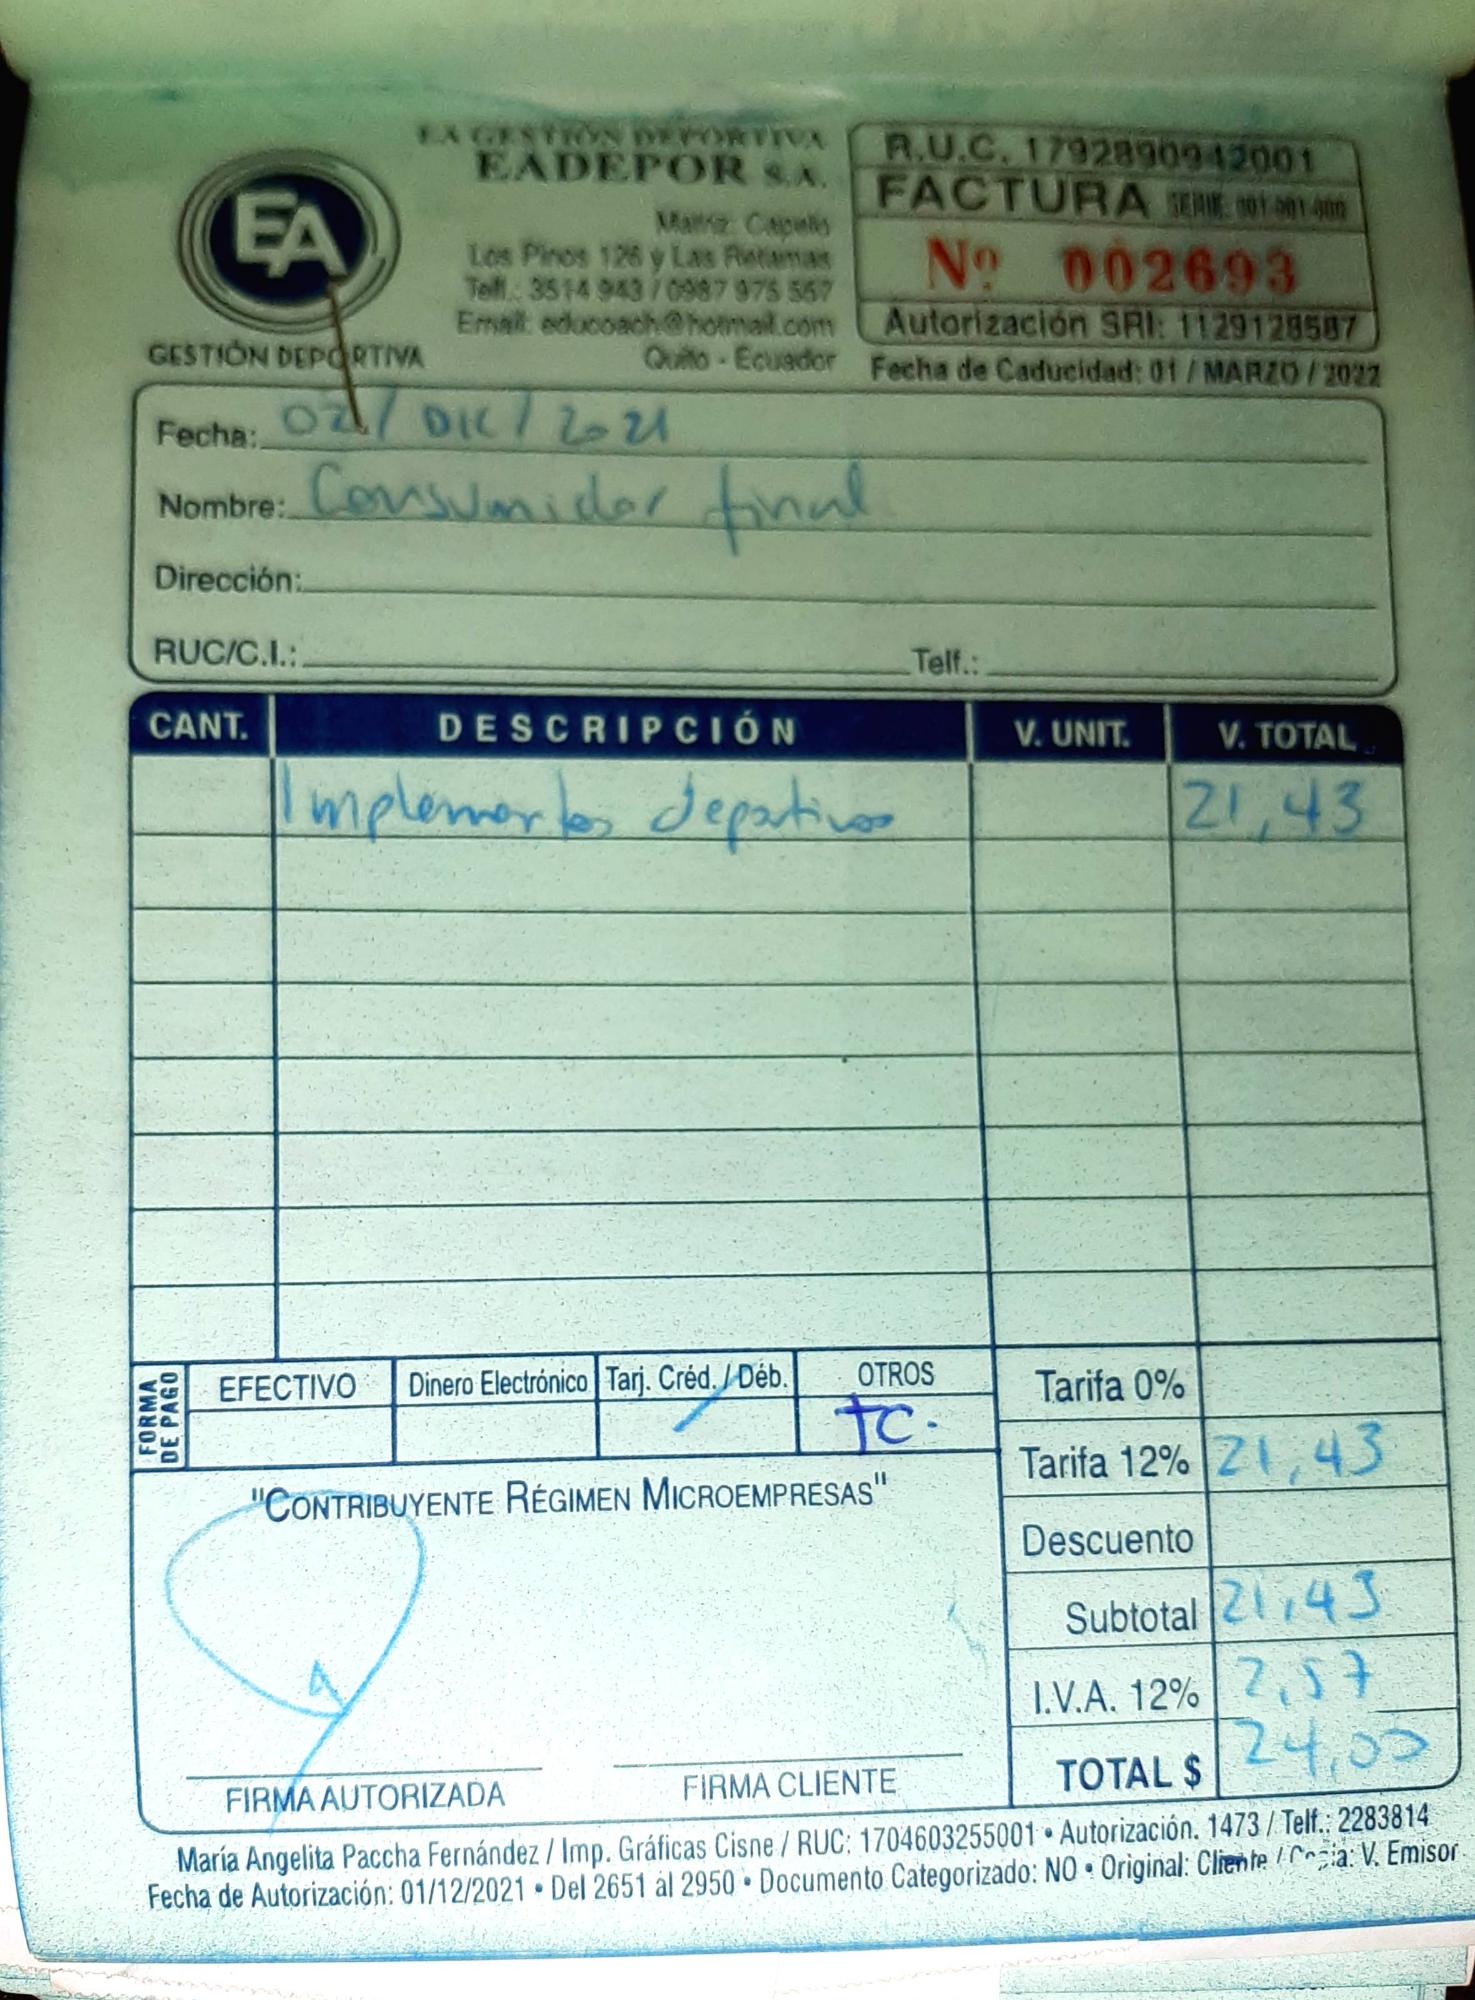 EA GESTIÓN DEPORTIVA
EADEPOR S.A.
EA
GESTIÓN DEPORTIVA
Matriz: Capelo
Los Pinos 126 y Las Retamas
Telf.: 3514 943 / 0987 975 557
Email: educoach@hotmail.com
Quito - Ecuador
R.U.C. 1792890942001
FACTURA SERIE: 001-001-000
Nº 002693
Autorización SRI: 1129128587
Fecha de Caducidad: 01 / MARZO / 2022
Fecha: 02 / DIC / 2021
Nombre: Consumidor final
Dirección:
RUC/C.I.: Telf.:
CANT. DESCRIPCIÓN V. UNIT. V. TOTAL
Implementos deportivos 21,43
FORMA DE PAGO
EFECTIVO Dinero Electrónico Tarj. Créd. / Déb. OTROS
TC.
Tarifa 0%
Tarifa 12% 21,43
Descuento
Subtotal 21,43
I.V.A. 12% 2,57
TOTAL $ 24,00
"CONTRIBUYENTE RÉGIMEN MICROEMPRESAS"
FIRMA AUTORIZADA FIRMA CLIENTE
María Angelita Paccha Fernández / Imp. Gráficas Cisne / RUC: 1704603255001 • Autorización. 1473 / Telf.: 2283814
Fecha de Autorización: 01/12/2021 • Del 2651 ál 2950 • Documento Categorizado: NO • Original: Cliente / Copia: V. Emisor